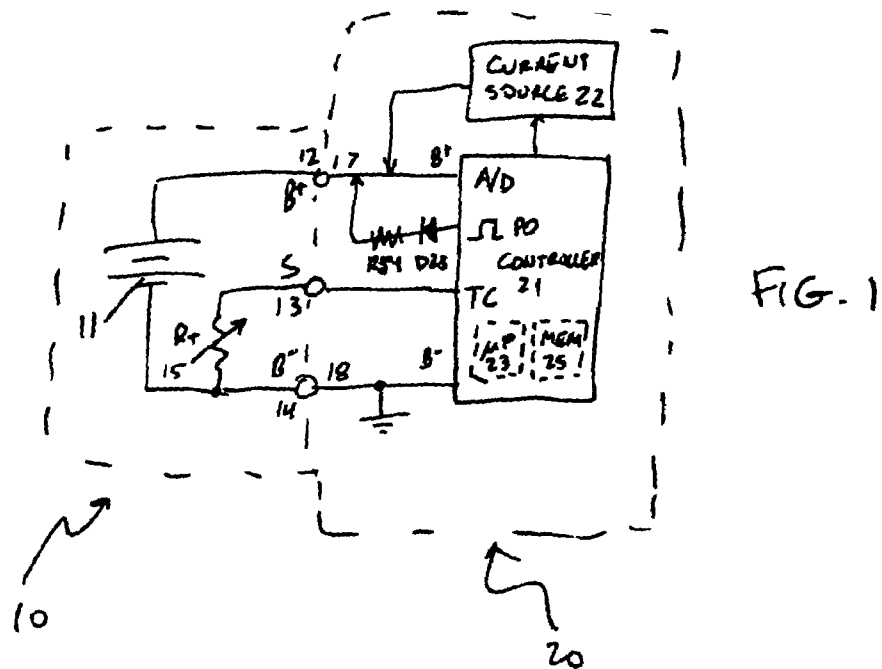 CURRENT
SOURCE 22
12 17 B+
B+
A/D
PO
R54 D28
CONTROLLER
21
S
13
TC
11
RT
15
B- 18 B-
14
μP
23
MEM
25
FIG. 1
10
20